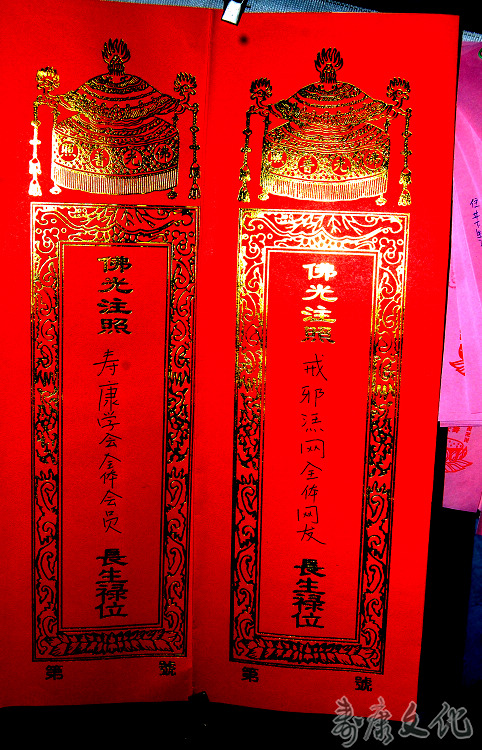 佛光注照
寿康学会全体会员
長生祿位
第 號
佛光注照
戒邪淫网全体网友
長生祿位
第 號
寿康文化